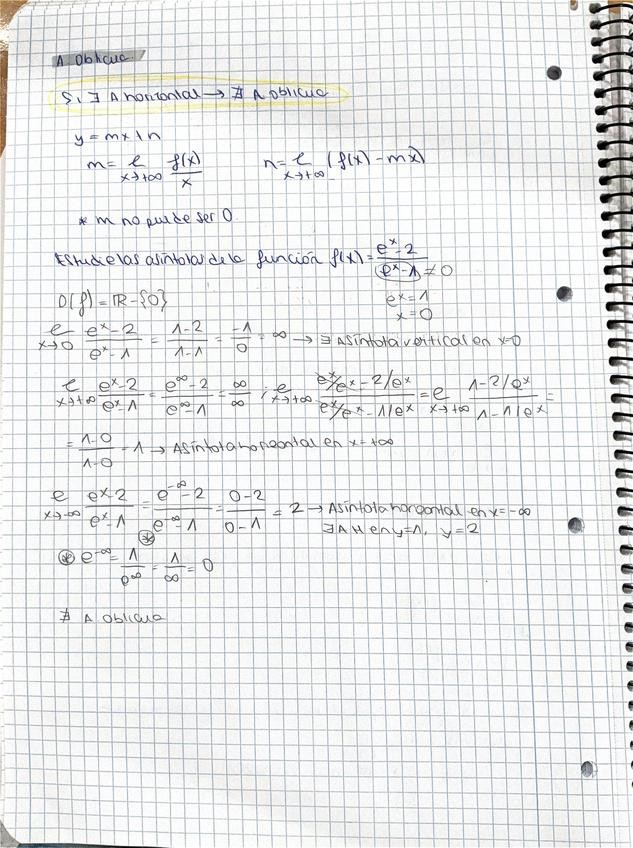 A. Oblicua.
Si ∃ A horizontal → ∄ A oblicua
y = mx + n
m = l x→+∞ f(x)/x    n = l x→+∞ (f(x) - mx)
* m no puede ser 0.
Estudie las asíntotas de la función f(x) = (e^x - 2)/(e^x - 1) ≠ 0
D(f) = ℝ - {0}    e^x = 1
x = 0
l x→0 (e^x - 2)/(e^x - 1) = (1 - 2)/(1 - 1) = -1/0 = ∞ → ∃ Asíntota vertical en x=0
l x→+∞ (e^x - 2)/(e^x - 1) = (e^∞ - 2)/(e^∞ - 1) = ∞/∞ ; l x→+∞ (e^x/e^x - 2/e^x)/(e^x/e^x - 1/e^x) = l x→+∞ (1 - 2/e^x)/(1 - 1/e^x) =
= (1 - 0)/(1 - 0) = 1 → Asíntota horizontal en x = +∞
l x→-∞ (e^x - 2)/(e^x - 1) = (e^-∞ - 2)/(e^-∞ - 1) = (0 - 2)/(0 - 1) = 2 → Asíntota horizontal en x = -∞
∃ A H en y=1, y=2
⊛
⊛ e^-∞ = 1/e^∞ = 1/∞ = 0
∄ A oblicua